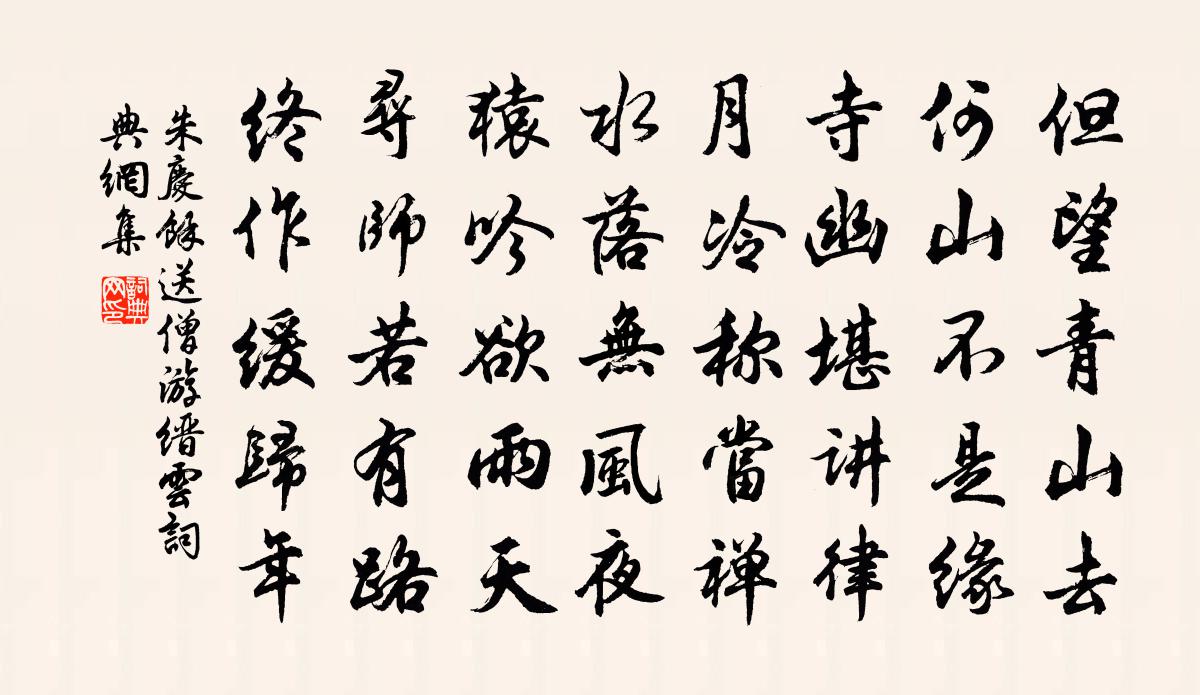 但望青山去
何山不是缘
寺幽堪讲律
月冷称當禅
水落無風夜
猿吟欲雨天
尋師若有路
终作缓歸年
朱慶餘送僧游缙雲詞
典網集
詞典网印